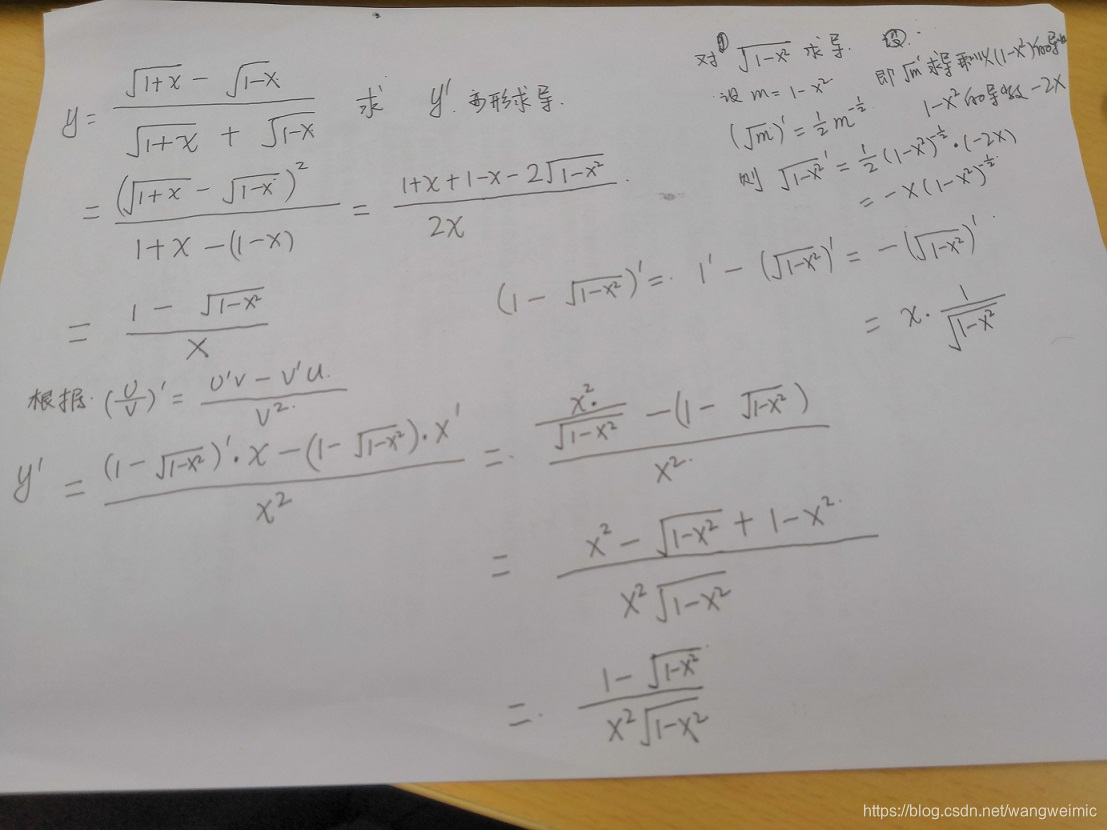 y = (√(1+x) - √(1-x)) / (√(1+x) + √(1-x)) 求 y'. 变形求导.
= (√(1+x) - √(1-x))² / (1+x-(1-x)) = (1+x+1-x-2√(1-x²)) / 2x.
= (1 - √(1-x²)) / x
对① √(1-x²) 求导.
设 m = 1-x²
(√m)' = ½m^(-½)
即 √m' 求导 乘以 (1-x²)的导数
1-x²的导数 -2x
则 √(1-x²)' = ½(1-x²)^(-½)·(-2x)
= -x(1-x²)^(-½).
(1 - √(1-x²))' = 1' - (√(1-x²))' = -(√(1-x²))'
= x·1/√(1-x²)
根据 (U/V)' = (U'V - V'U) / V².
y' = ((1-√(1-x²))'·x - (1-√(1-x²))·x') / x² = (x²/√(1-x²) - (1 - √(1-x²))) / x²
= (x² - √(1-x²) + 1-x²) / (x²√(1-x²))
= (1 - √(1-x²)) / (x²√(1-x²))
https://blog.csdn.net/wangweimic